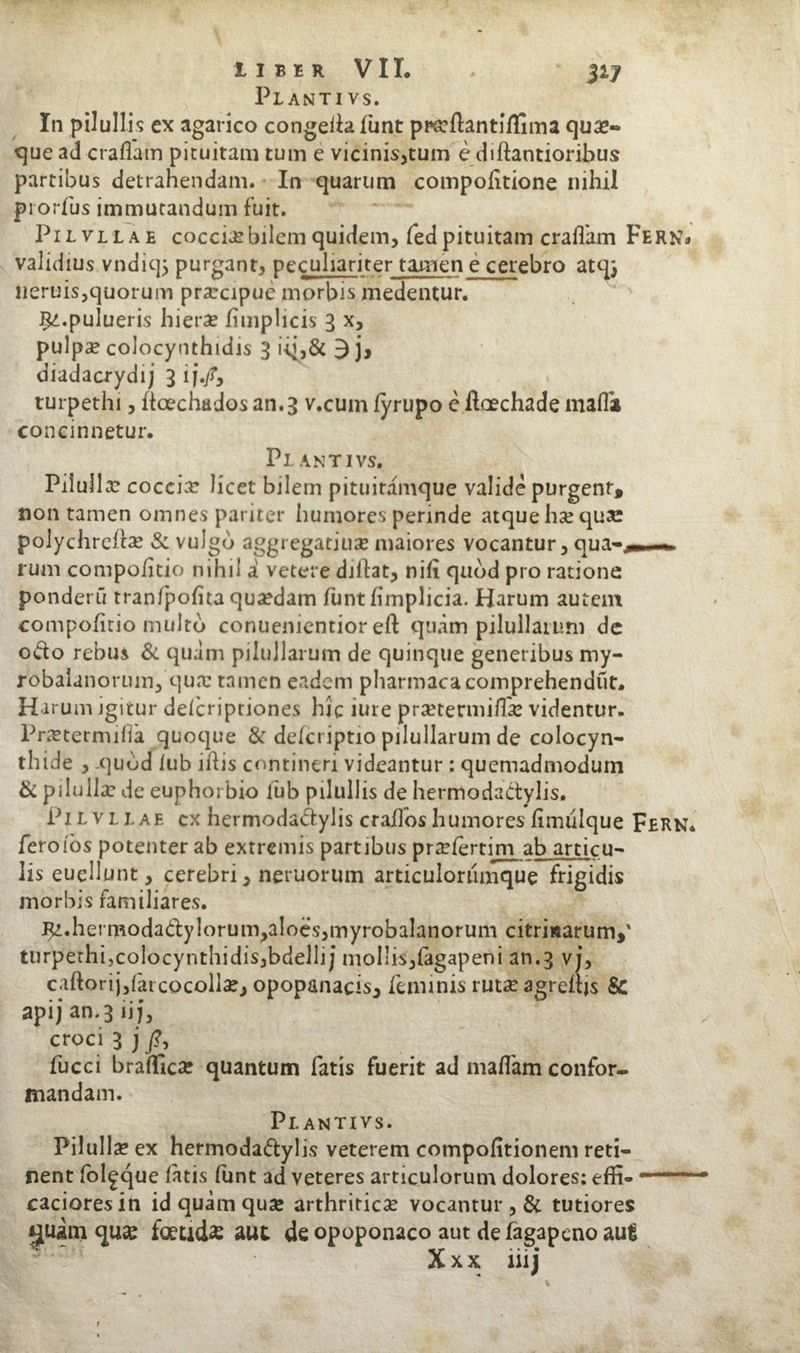 LIBER VII. 327
PLANTIVS.
In pilullis ex agarico congeſta ſunt præſtantiſſima quæ-
que ad craſſam pituitam tum e vicinis,tum è diſtantioribus
partibus detrahendam. In quarum compoſitione nihil
prorſus immutandum fuit.
PILVLLAE cocciæ bilem quidem, ſed pituitam craſſam FERN.
validius vndiq; purgant, peculiariter tamen è cerebro atq;
neruis,quorum præcipuè morbis medentur.
℞.pulueris hieræ ſimplicis ʒ x,
pulpæ colocynthidis ʒ iij,& ℈ j,
diadacrydij ʒ ij.ß,
turpethi, ſtœchados an.ʒ v.cum ſyrupo è ſtœchade maſſa
concinnetur.
PLANTIVS.
Pilullæ cocciæ licet bilem pituitámque validè purgent,
non tamen omnes pariter humores perinde atque hæ quæ
polychreſtæ & vulgò aggregatiuæ maiores vocantur, qua-
rum compoſitio nihil à vetere diſtat, niſi quòd pro ratione
ponderū tranſpoſita quædam ſunt ſimplicia. Harum autem
compoſitio multò conuenientior eſt quàm pilullarum de
octo rebus & quàm pilullarum de quinque generibus my-
robalanorum, quæ tamen eadem pharmaca comprehendūt.
Harum igitur deſcriptiones hîc iure prætermiſſæ videntur.
Prætermiſſa quoque & deſcriptio pilullarum de colocyn-
thide , quòd ſub iſtis contineri videantur : quemadmodum
& pilullæ de euphorbio ſub pilullis de hermodactylis.
PILVLLAE ex hermodactylis craſſos humores ſimúlque FERN.
feroſos potenter ab extremis partibus præſertim ab articu-
lis euellunt, cerebri, neruorum articulorúmque frigidis
morbis familiares.
℞.hermodactylorum,aloës,myrobalanorum citrinarum,
turpethi,colocynthidis,bdellij mollis,ſagapeni an.ʒ vj,
caſtorij,ſarcocollæ, opopanacis, ſeminis rutæ agreſtis &
apij an.ʒ iij,
croci ʒ j ß,
ſucci braſſicæ quantum ſatis fuerit ad maſſam confor-
mandam.
PLANTIVS.
Pilullæ ex hermodactylis veterem compoſitionem reti-
nent ſolęque ſatis ſunt ad veteres articulorum dolores: effi-
caciores in id quàm quæ arthriticæ vocantur, & tutiores
quàm quæ fœtidæ aut de opoponaco aut de ſagapeno aut
Xxx iiij